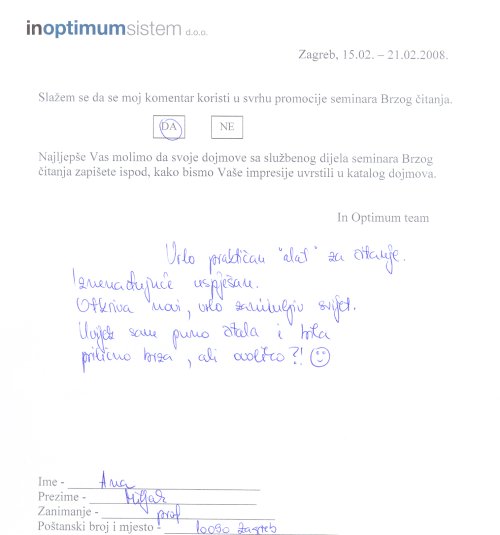 inoptimumsistem d.o.o.
Zagreb, 15.02. – 21.02.2008.
Slažem se da se moj komentar koristi u svrhu promocije seminara Brzog čitanja.
DA NE
Najljepše Vas molimo da svoje dojmove sa službenog dijela seminara Brzog
čitanja zapišete ispod, kako bismo Vaše impresije uvrstili u katalog dojmova.
In Optimum team
Vrlo praktičan "alat" za čitanje.
Iznenađujuće uspješan.
Otkriva novi, vrlo zanimljiv svijet.
Uvijek sam puno čitala i bila
prilično brza, ali ovoliko?! ☺
Ime - Ana
Prezime - Miljak
Zanimanje - prof
Poštanski broj i mjesto - 10090 Zagreb